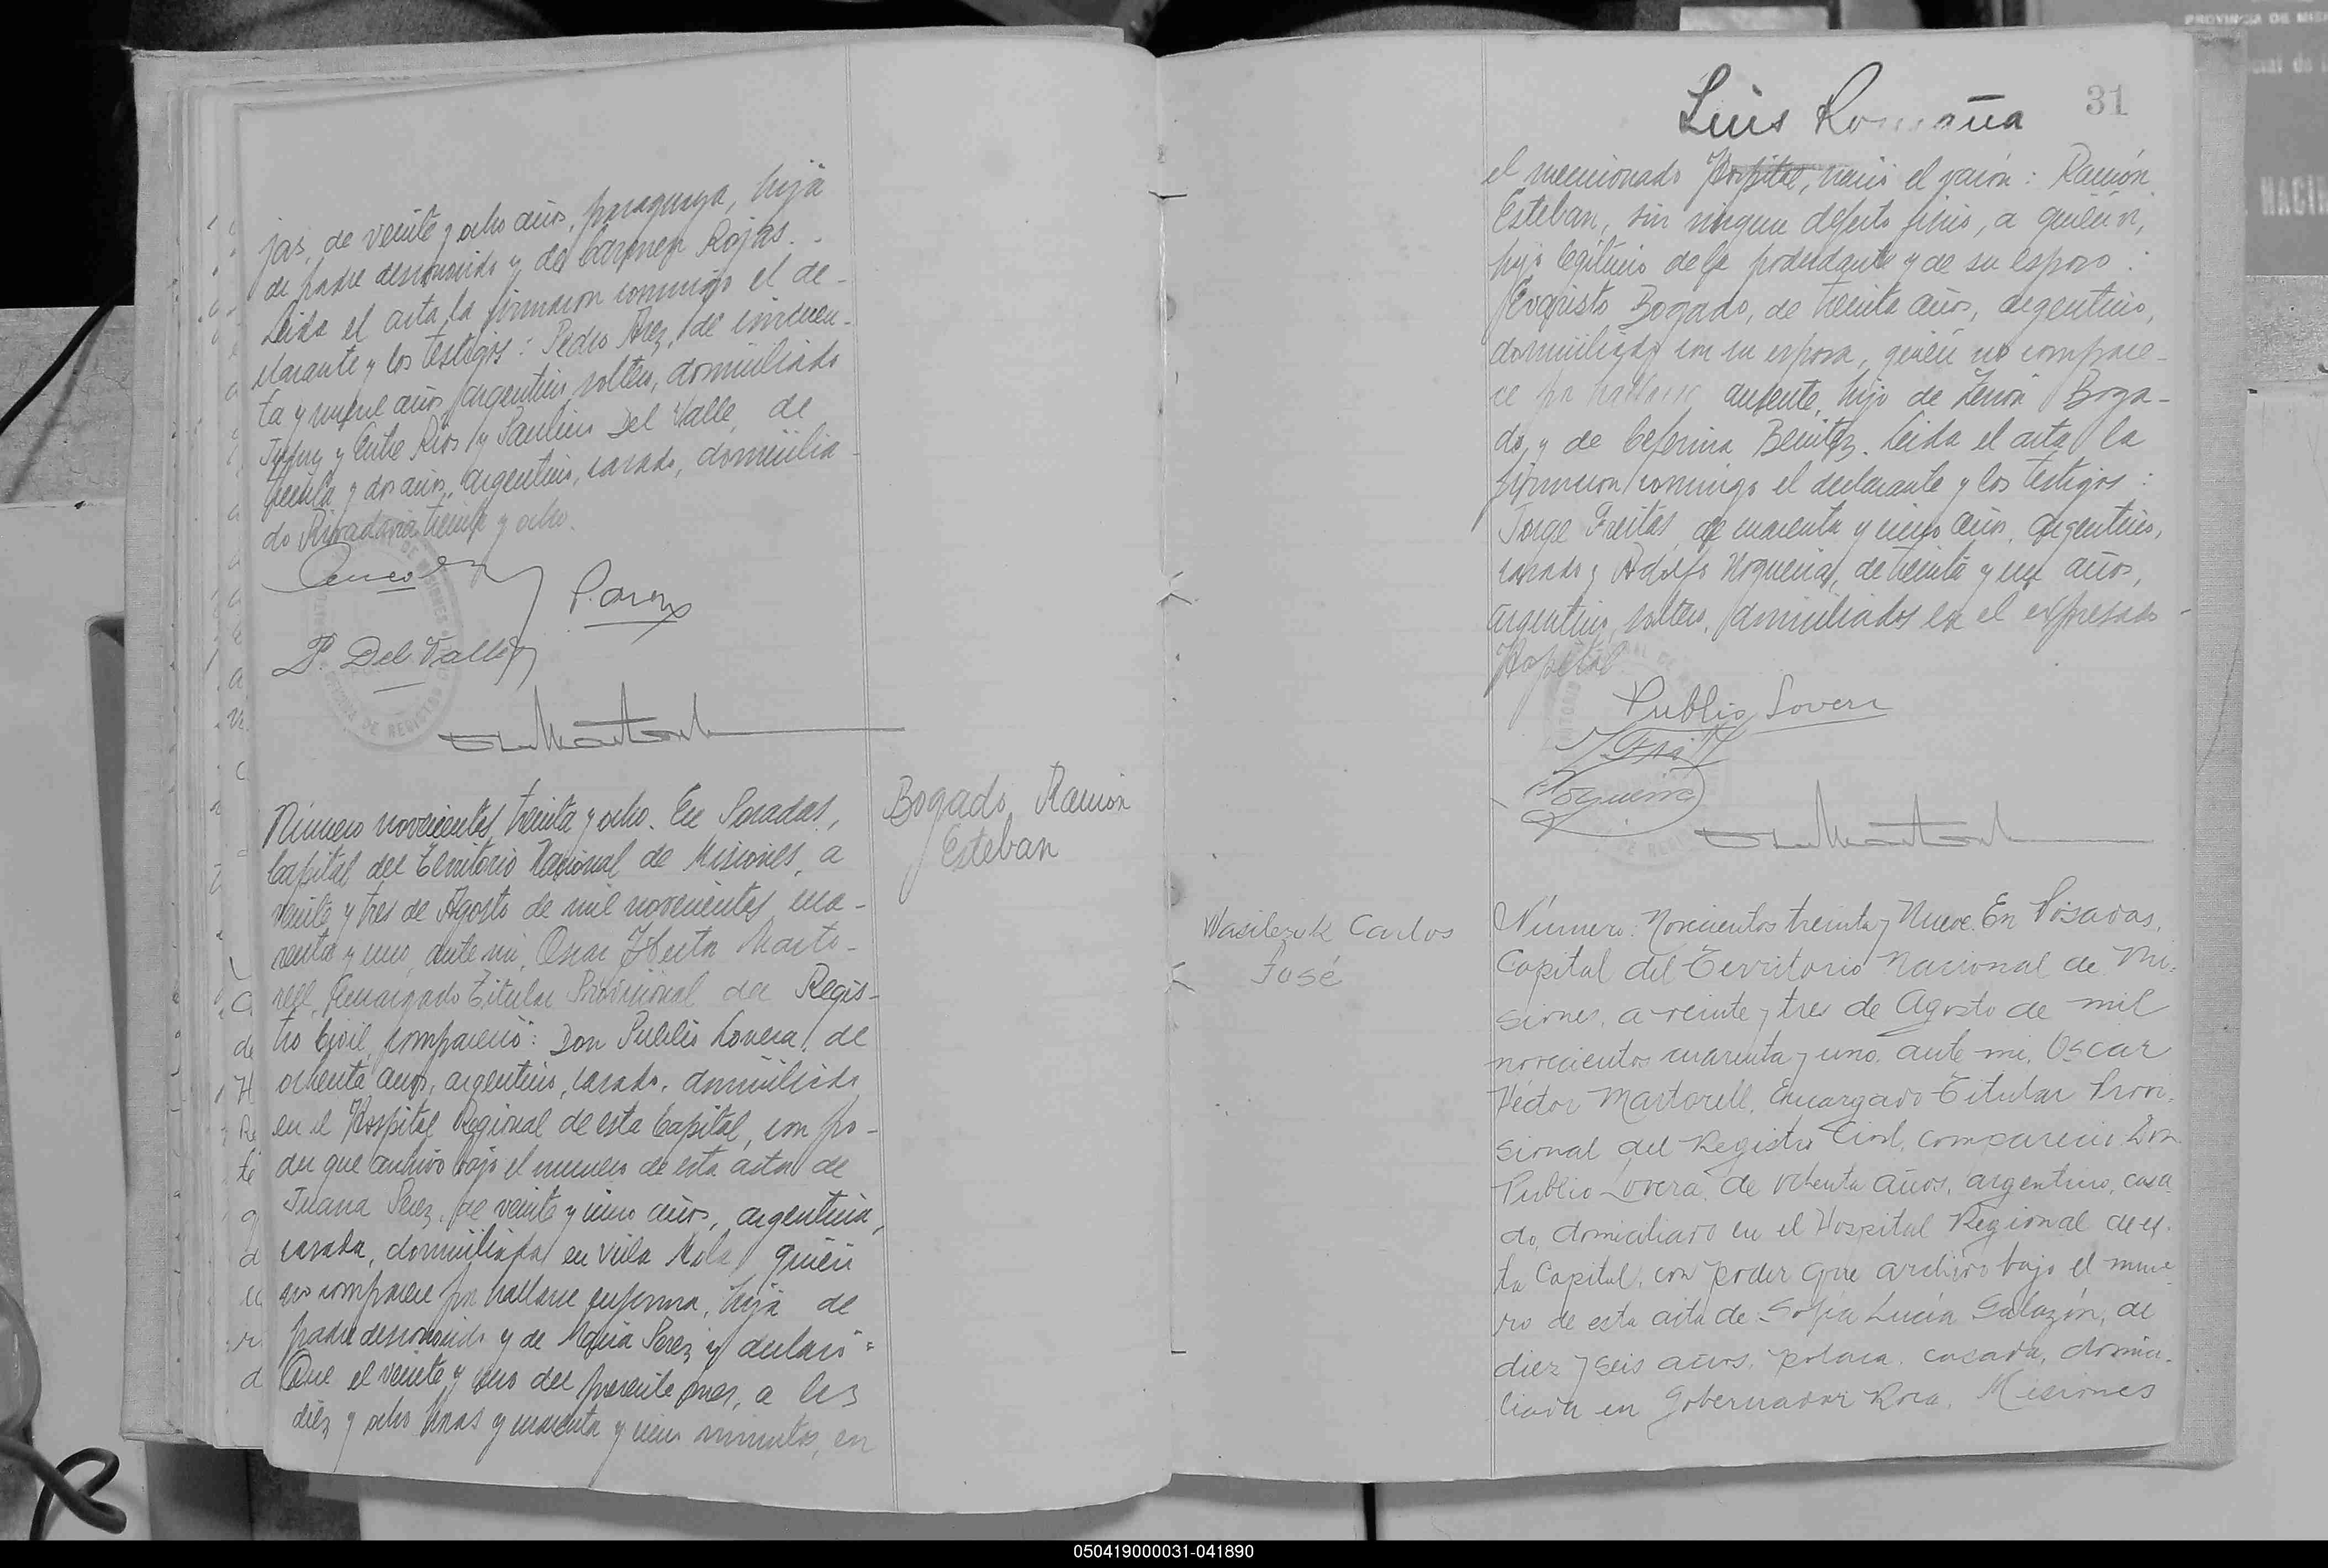 jas, de veinte y ocho años, paraguaya, hija
de padre desconocido y de Carmen Rojas.
Leida el acta, la firmaron conmigo el de-
clarante y los testigos: Pedro Arez, de cincuen-
ta y nueve años, argentino, soltero, domiciliado
Jujuy y Entre Rios y Paulino Del Valle, de
treinta y dos años, argentino, casado, domicilia-
do Rivadavia treinta y ocho.
P. Arez
P. Del Valle
Número novecientos treinta y ocho. En Posadas,
Capital del Territorio Nacional de Misiones, a
veinte y tres de Agosto de mil novecientos cua-
renta y uno, ante mi, Oscar Héctor Marto-
rell, Encargado Titular Provisional del Regis-
tro Civil, compareció: Don Publio Lovera, de
ochenta años, argentino, casado, domiciliado
en el Hospital Regional de esta Capital, con po-
der que archivo bajo el numero de esta acta de
Juana Perez, de veinte y cinco años, argentina,
casada, domiciliada en Villa Mola, quién
no comparece por hallarse enferma, hija de
padre desconocido y de Maria Perez y declaró:
Que el veinte y uno del presente mes, a las
diez y ocho horas y cuarenta y cinco minutos, en
Bogado Ramón
Esteban
31
Luis Romaña
el mencionado Hospital, nació el varón: Ramón
Esteban, sin ningun defecto fisico, a quién vi,
hijo legitimo de la poderdante y de su esposo:
Evaristo Bogado, de treinta años, argentino,
domiciliado con su esposa, quién no compare-
ce por hallarse ausente, hijo de Zenón Boga-
do, y de Ceferina Benitez. Leida el acta la
firmaron conmigo el declarante y los testigos:
Jorge Freitas, de cuarenta y cinco años, argentino,
casado y Adolfo Noguera, de treinta y un años,
argentino, soltero, domiciliados en el expresado
Hospital
Publio Lovera
Wasilezuk Carlos
José
Número: Novecientos treinta y Nueve. En Posadas,
Capital del Territorio Nacional de Mi-
siones, a veinte y tres de Agosto de mil
novecientos cuarenta y uno, ante mi, Oscar
Héctor Martorell, Encargado Titular Provi-
sional del Registro Civil, compareció Don
Publio Lovera, de ochenta años, argentino, casa-
do, domiciliado en el Hospital Regional de es-
ta Capital, con poder que archivo bajo el nume-
ro de esta acta de Sofía Lucía Galazón, de
diez y seis años, polaca, casada, domici-
liada en Gobernador Roca, Misiones
050419000031-041890